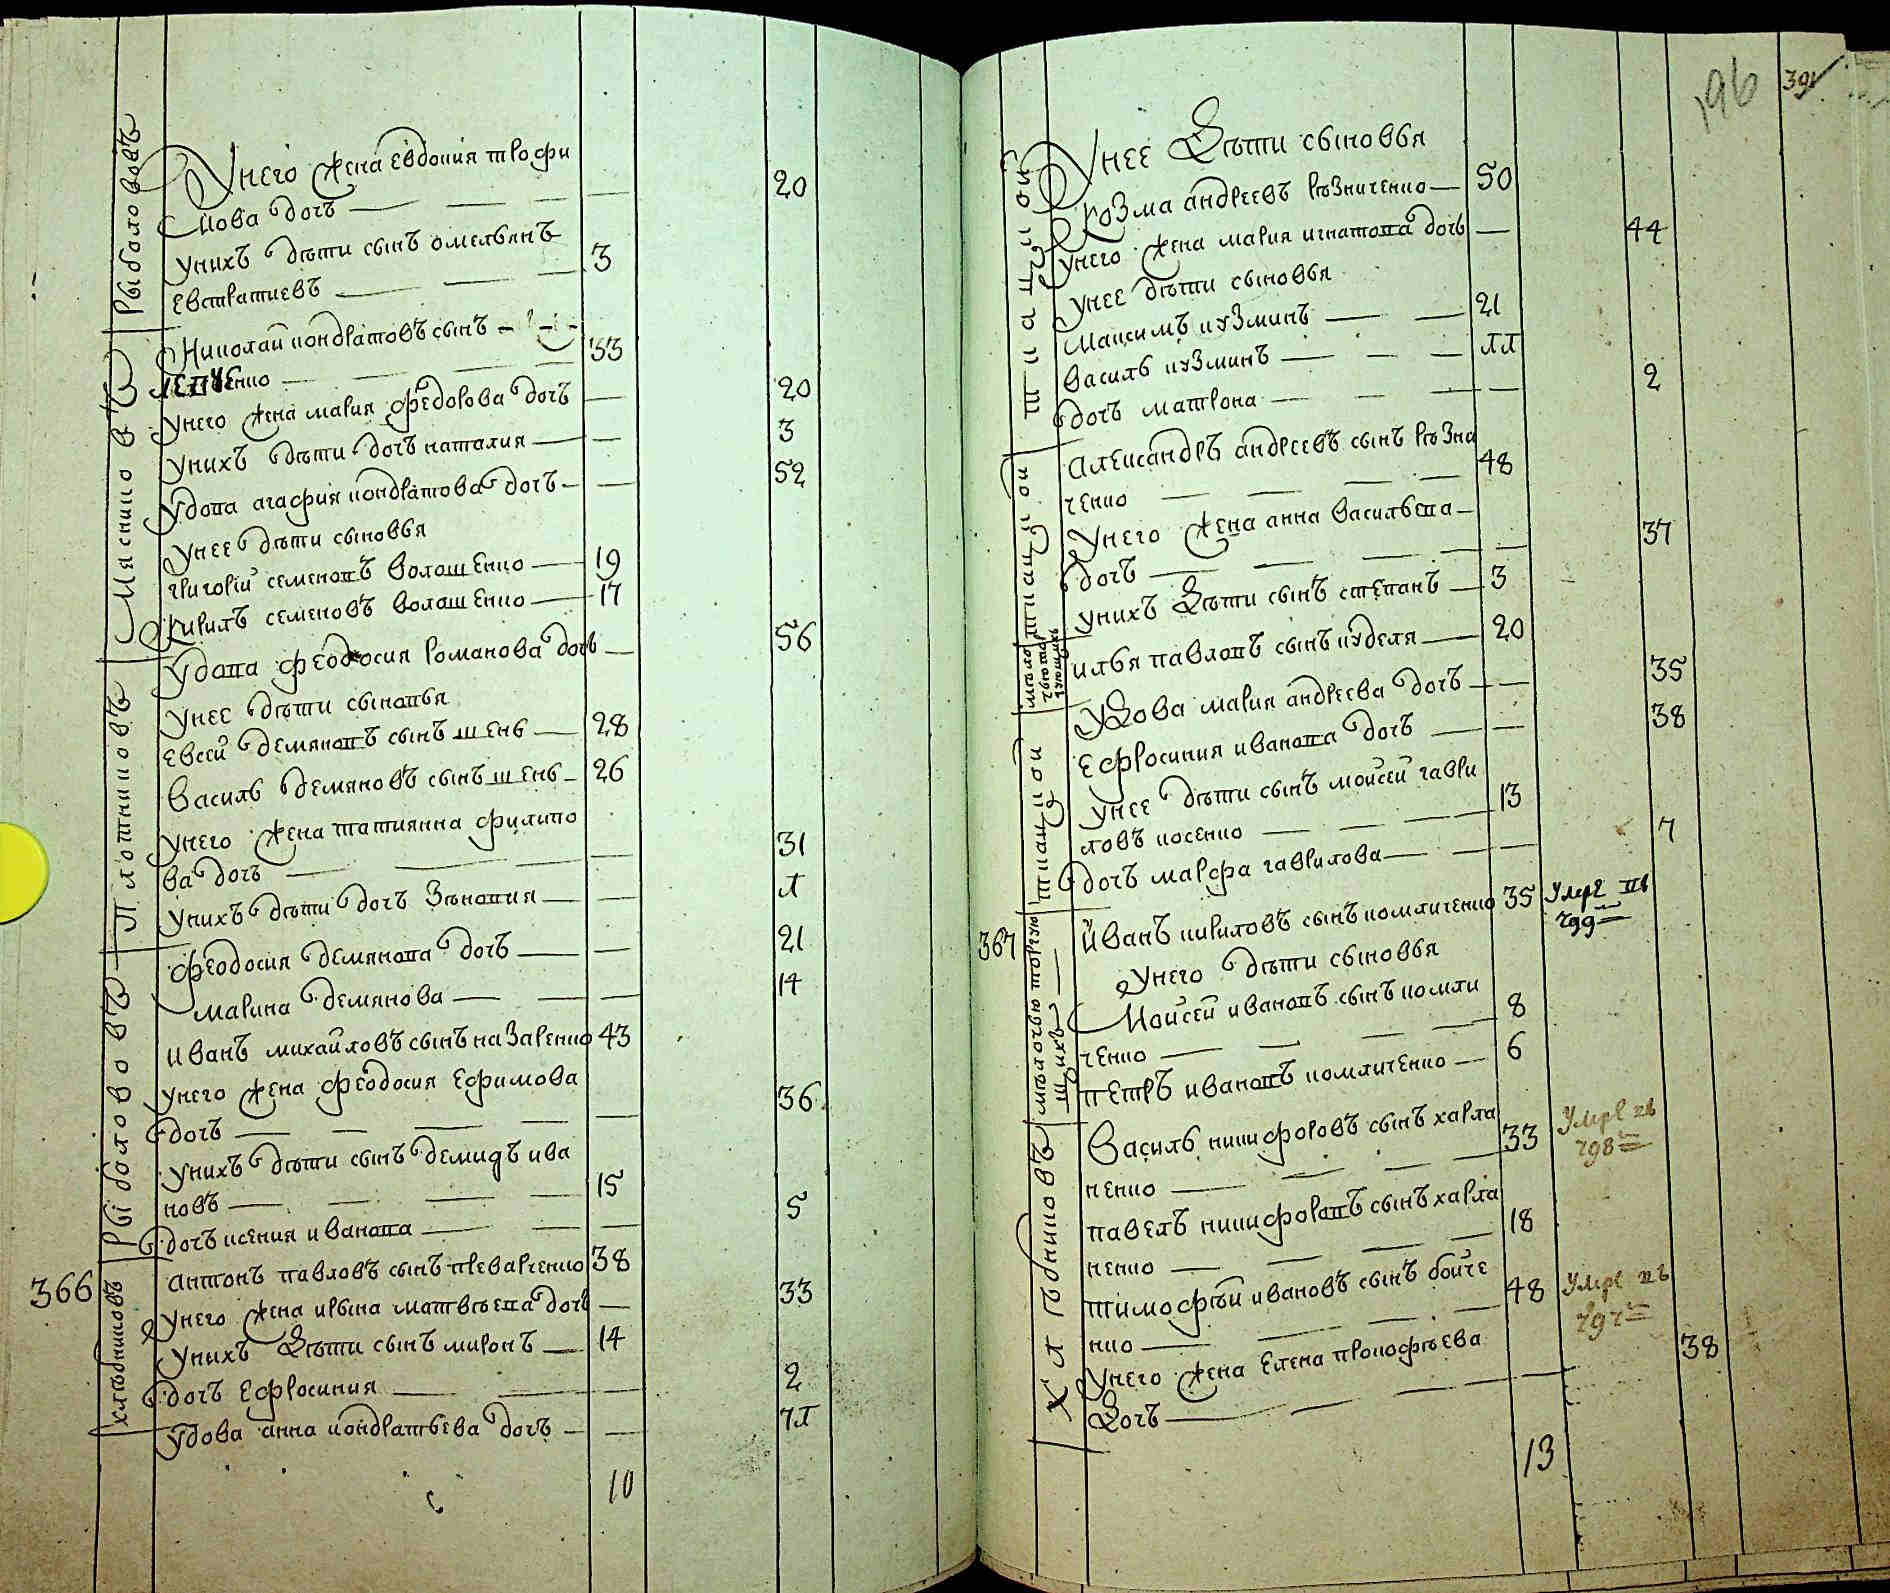 Рыболововъ
Унего жена евдокия трофи
мова дочъ
20
унихъ дѣти сынъ омельянъ
евстратиевъ
3
Мяснико въ
Николай кондратовъ сынъ
33
унего жена мария федорова дочъ
20
унихъ дѣти дочъ наталия
3
удова агафия кондратова дочъ
52
унее дѣти сыновья
григорий семеновъ волошенко
19
кирилъ семеновъ волошенко
17
Плотниковъ
удова феодосия романова дочь
56
унее дѣти сыновья
евсей демяновъ сынъ шень
28
василь демяновъ сынъ шень
26
унего жена татиянна филипо
ва дочъ
31
унихъ дѣти дочъ Зѣновия
л
Рыболововъ
феодосия демянова дочъ
21
марина демянова
14
иванъ михайловъ сынъ наЗаренко
43
унего жена феодосия ефимова
дочъ
36
унихъ дѣти сынъ демидъ ива
новъ
15
дочъ ксения иванова
5
366
хлѣбниковъ
антонъ павловъ сынъ преварченко
38
унего жена ирына матвѣева дочь
33
унихъ дѣти сынъ миронъ
14
дочъ ефросиния
2
удова анна кондратьева дочъ
10
196
391
ткацкой
Унее дѣти сыновья
козма андреевъ рѣзниченко
50
унего жена мария игнатова дочь
44
унее дѣти сыновья
максимъ кузминъ
21
василь кузминъ
лл
дочъ матрона
2
ткацкой
александръ андреевъ сынъ рѣзни
ченко
48
унего жена анна васильева
дочъ
37
унихъ дѣти сынъ степанъ
3
мѣлочью торгующихъ
илья павловъ сынъ куделя
20
удова мария андреева дочъ
35
ткацкой
ефросиния иванова дочъ
38
унее дѣти сынъ мойсей гаври
ловъ косенко
13
дочъ марфа гаврилова
7
367
мѣлочью торгую
щихъ
иванъ кириловъ сынъ комличенко
35
умре въ
799
унего дѣти сыновья
мойсей ивановъ сынъ комли
ченко
8
петръ ивановъ комличенко
6
Хлѣбниковъ
василь никифоровъ сынъ харла
ненко
33
умре въ
798
павелъ никифоровъ сынъ харла
ненко
18
тимофѣй ивановъ сынъ бойче
нко
48
умре въ
797
унего жена елена прокофѣева
дочъ
38
13